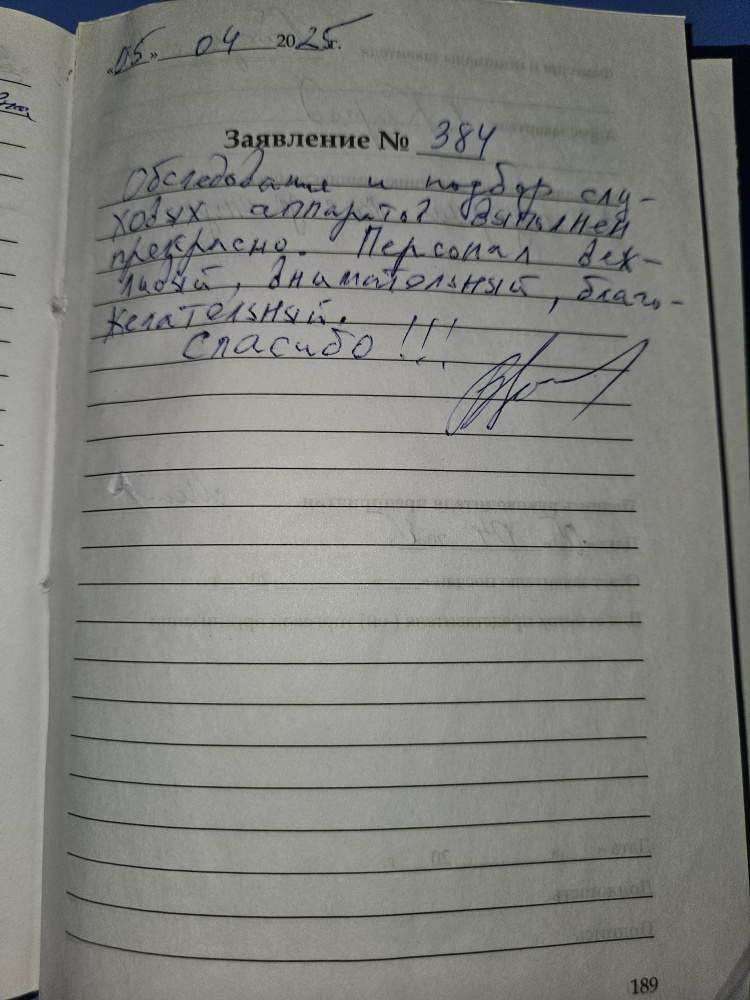 «05» 04 2025г.
Заявление № 384
Обследование и подбор слу-
ховых аппаратов выполнен
прекрасно. Персонал веж-
ливый, внимательный, благо-
желательный.
Спасибо!!!
189